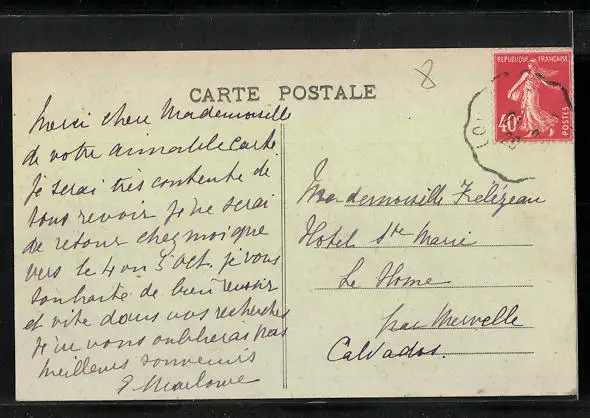 CARTE POSTALE
8
REPUBLIQUE FRANÇAISE
40c
POSTES
Merci chere Mademoiselle
de votre aimable carte
je serai très contente de
vous revoir je ne serai
de retour chez moi que
vers le 4 ou 5 oct. je vous
souhaite de bien reussir
et vite dans vos recherches
je ne vous oublierai pas
meilleurs souvenirs
Mademoiselle Frelézeau
Hotel Ste Marie
Le Home
par Merville
Calvados.